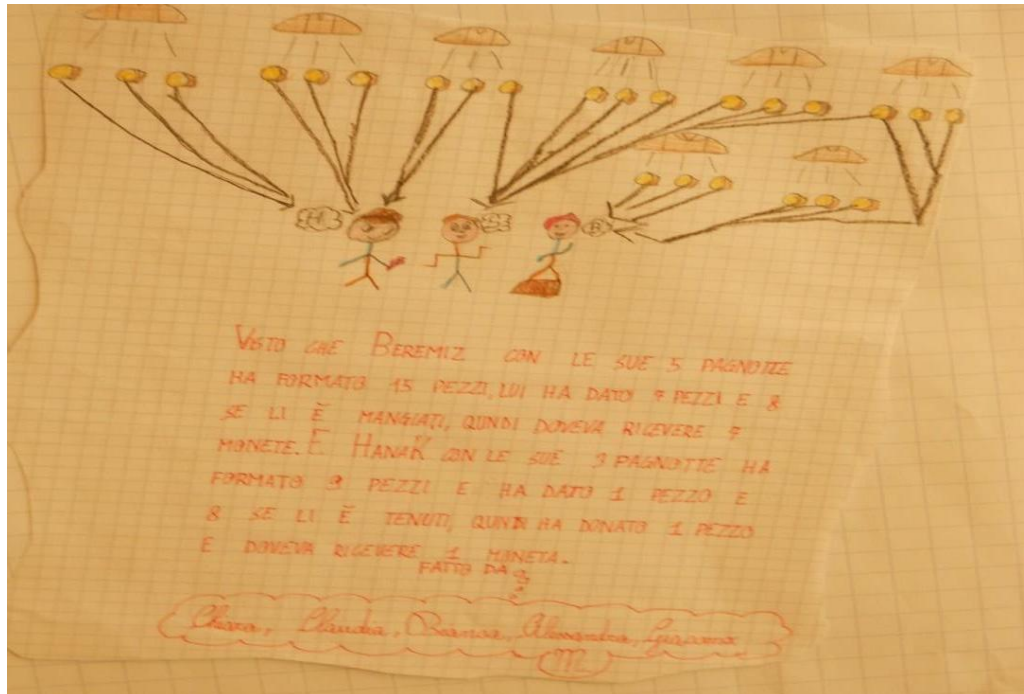 H
S
B
VISTO CHE BEREMIZ CON LE SUE 5 PAGNOTTE
HA FORMATO 15 PEZZI, LUI HA DATO 7 PEZZI E 8
SE LI È MANGIATI, QUNDI DOVEVA RICEVERE 7
MONETE. E HANAK CON LE SUE 3 PAGNOTTE HA
FORMATO 9 PEZZI E HA DATO 1 PEZZO E
8 SE LI È TENUTI, QUNDI HA DONATO 1 PEZZO
E DOVEVA RICEVERE 1 MONETA.
FATTO DA
Chiara, Claudia, Bianca, Alessandra, Giacomo